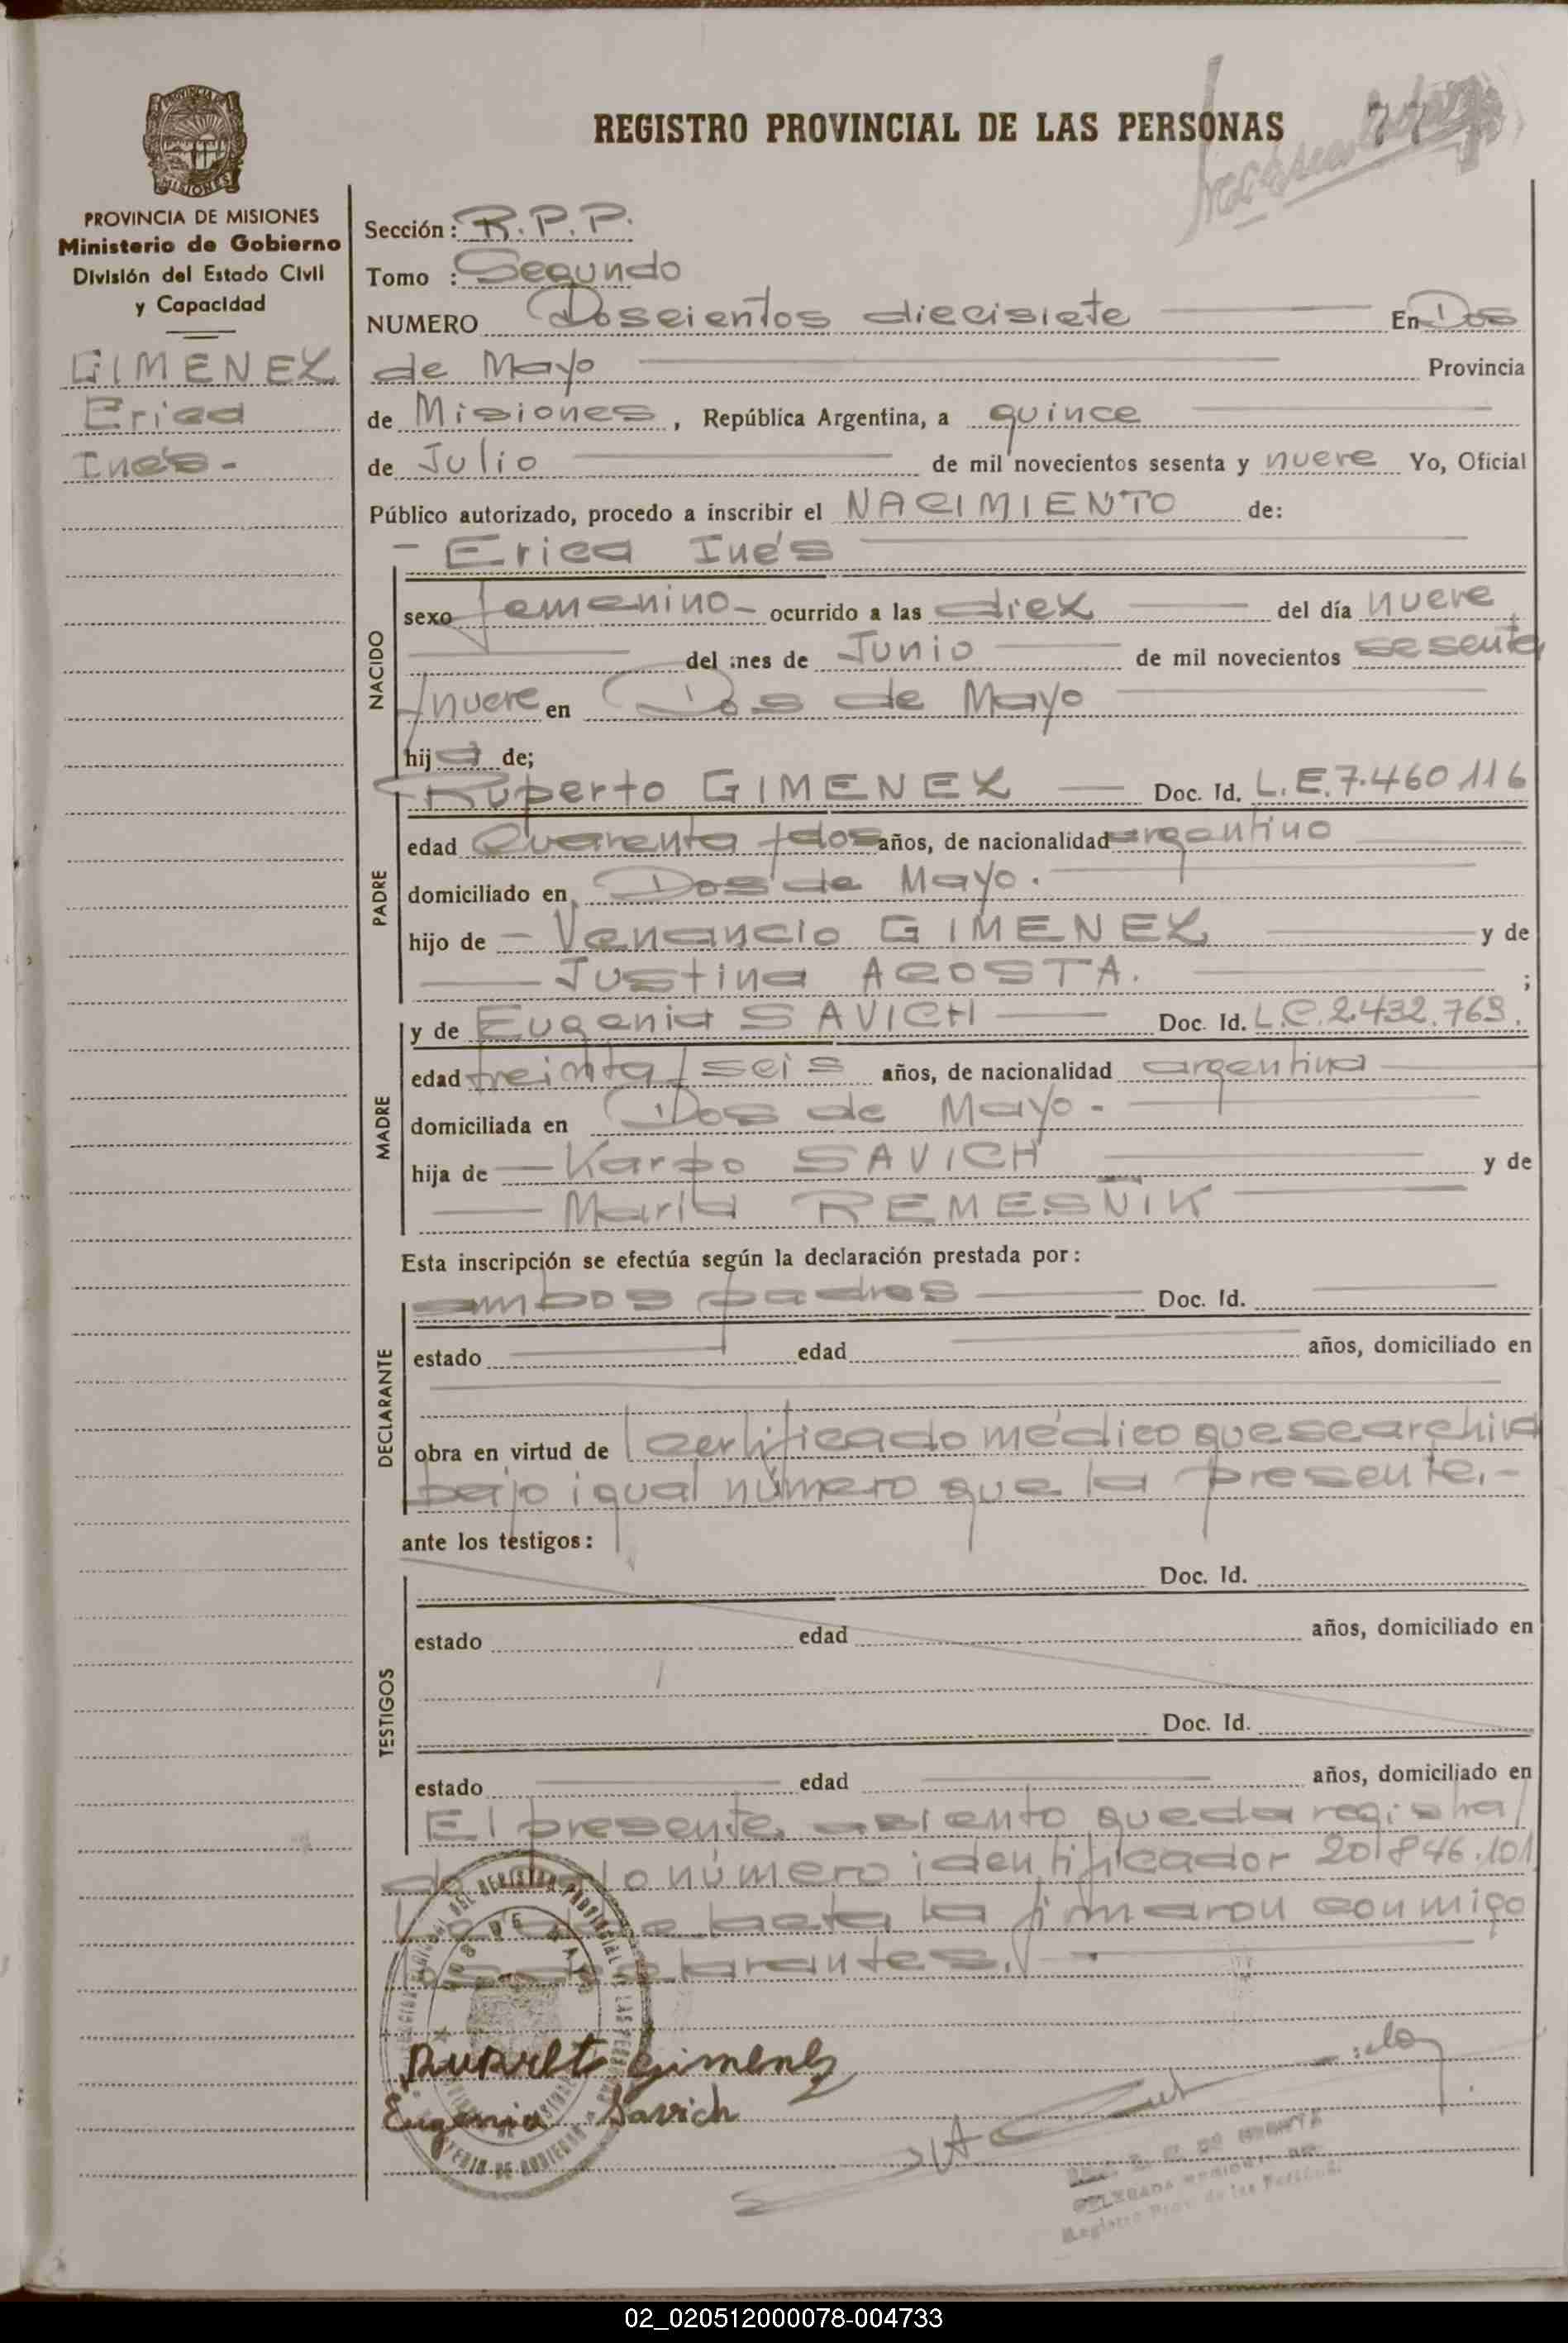 REGISTRO PROVINCIAL DE LAS PERSONAS
77
PROVINCIA DE MISIONES
Ministerio de Gobierno
División del Estado Civil
y Capacidad
GIMENEZ
Erica
Inés.-
Sección: R.P.P.
Tomo : Segundo
NUMERO Doscientos diecisiete En Dos
de Mayo Provincia
de Misiones, República Argentina, a quince
de Julio de mil novecientos sesenta y nueve Yo, Oficial
Público autorizado, procedo a inscribir el NACIMIENTO de:
- Erica Inés
NACIDO
sexo femenino- ocurrido a las diez del día nueve
del mes de Junio de mil novecientos sesenta
y nueve en Dos de Mayo
hija de;
PADRE
Ruperto GIMENEZ Doc. Id. L.E.7.460116
edad Cuarenta y dos años, de nacionalidad argentino
domiciliado en Dos de Mayo.
hijo de - Venancio GIMENEZ y de
Justina ACOSTA. ;
MADRE
y de Eugenia SAVICH Doc. Id. L.C.2.432.769.
edad treinta y seis años, de nacionalidad argentina
domiciliada en Dos de Mayo-
hija de Karpo SAVICH y de
María REMESÑIK
Esta inscripción se efectúa según la declaración prestada por:
DECLARANTE
ambos padres Doc. Id.
estado edad años, domiciliado en
obra en virtud de certificado médico que se archiva
bajo igual número que la presente.-
ante los testigos:
TESTIGOS
Doc. Id.
estado edad años, domiciliado en
Doc. Id.
estado edad años, domiciliado en
El presente asiento queda registra
do número identificador 20.846.101
acta la firmaron conmigo
los declarantes.
Ruperto Gimenez
Eugenia Savich
DELEGADA
Registro Prov. de las Personas
02_020512000078-004733